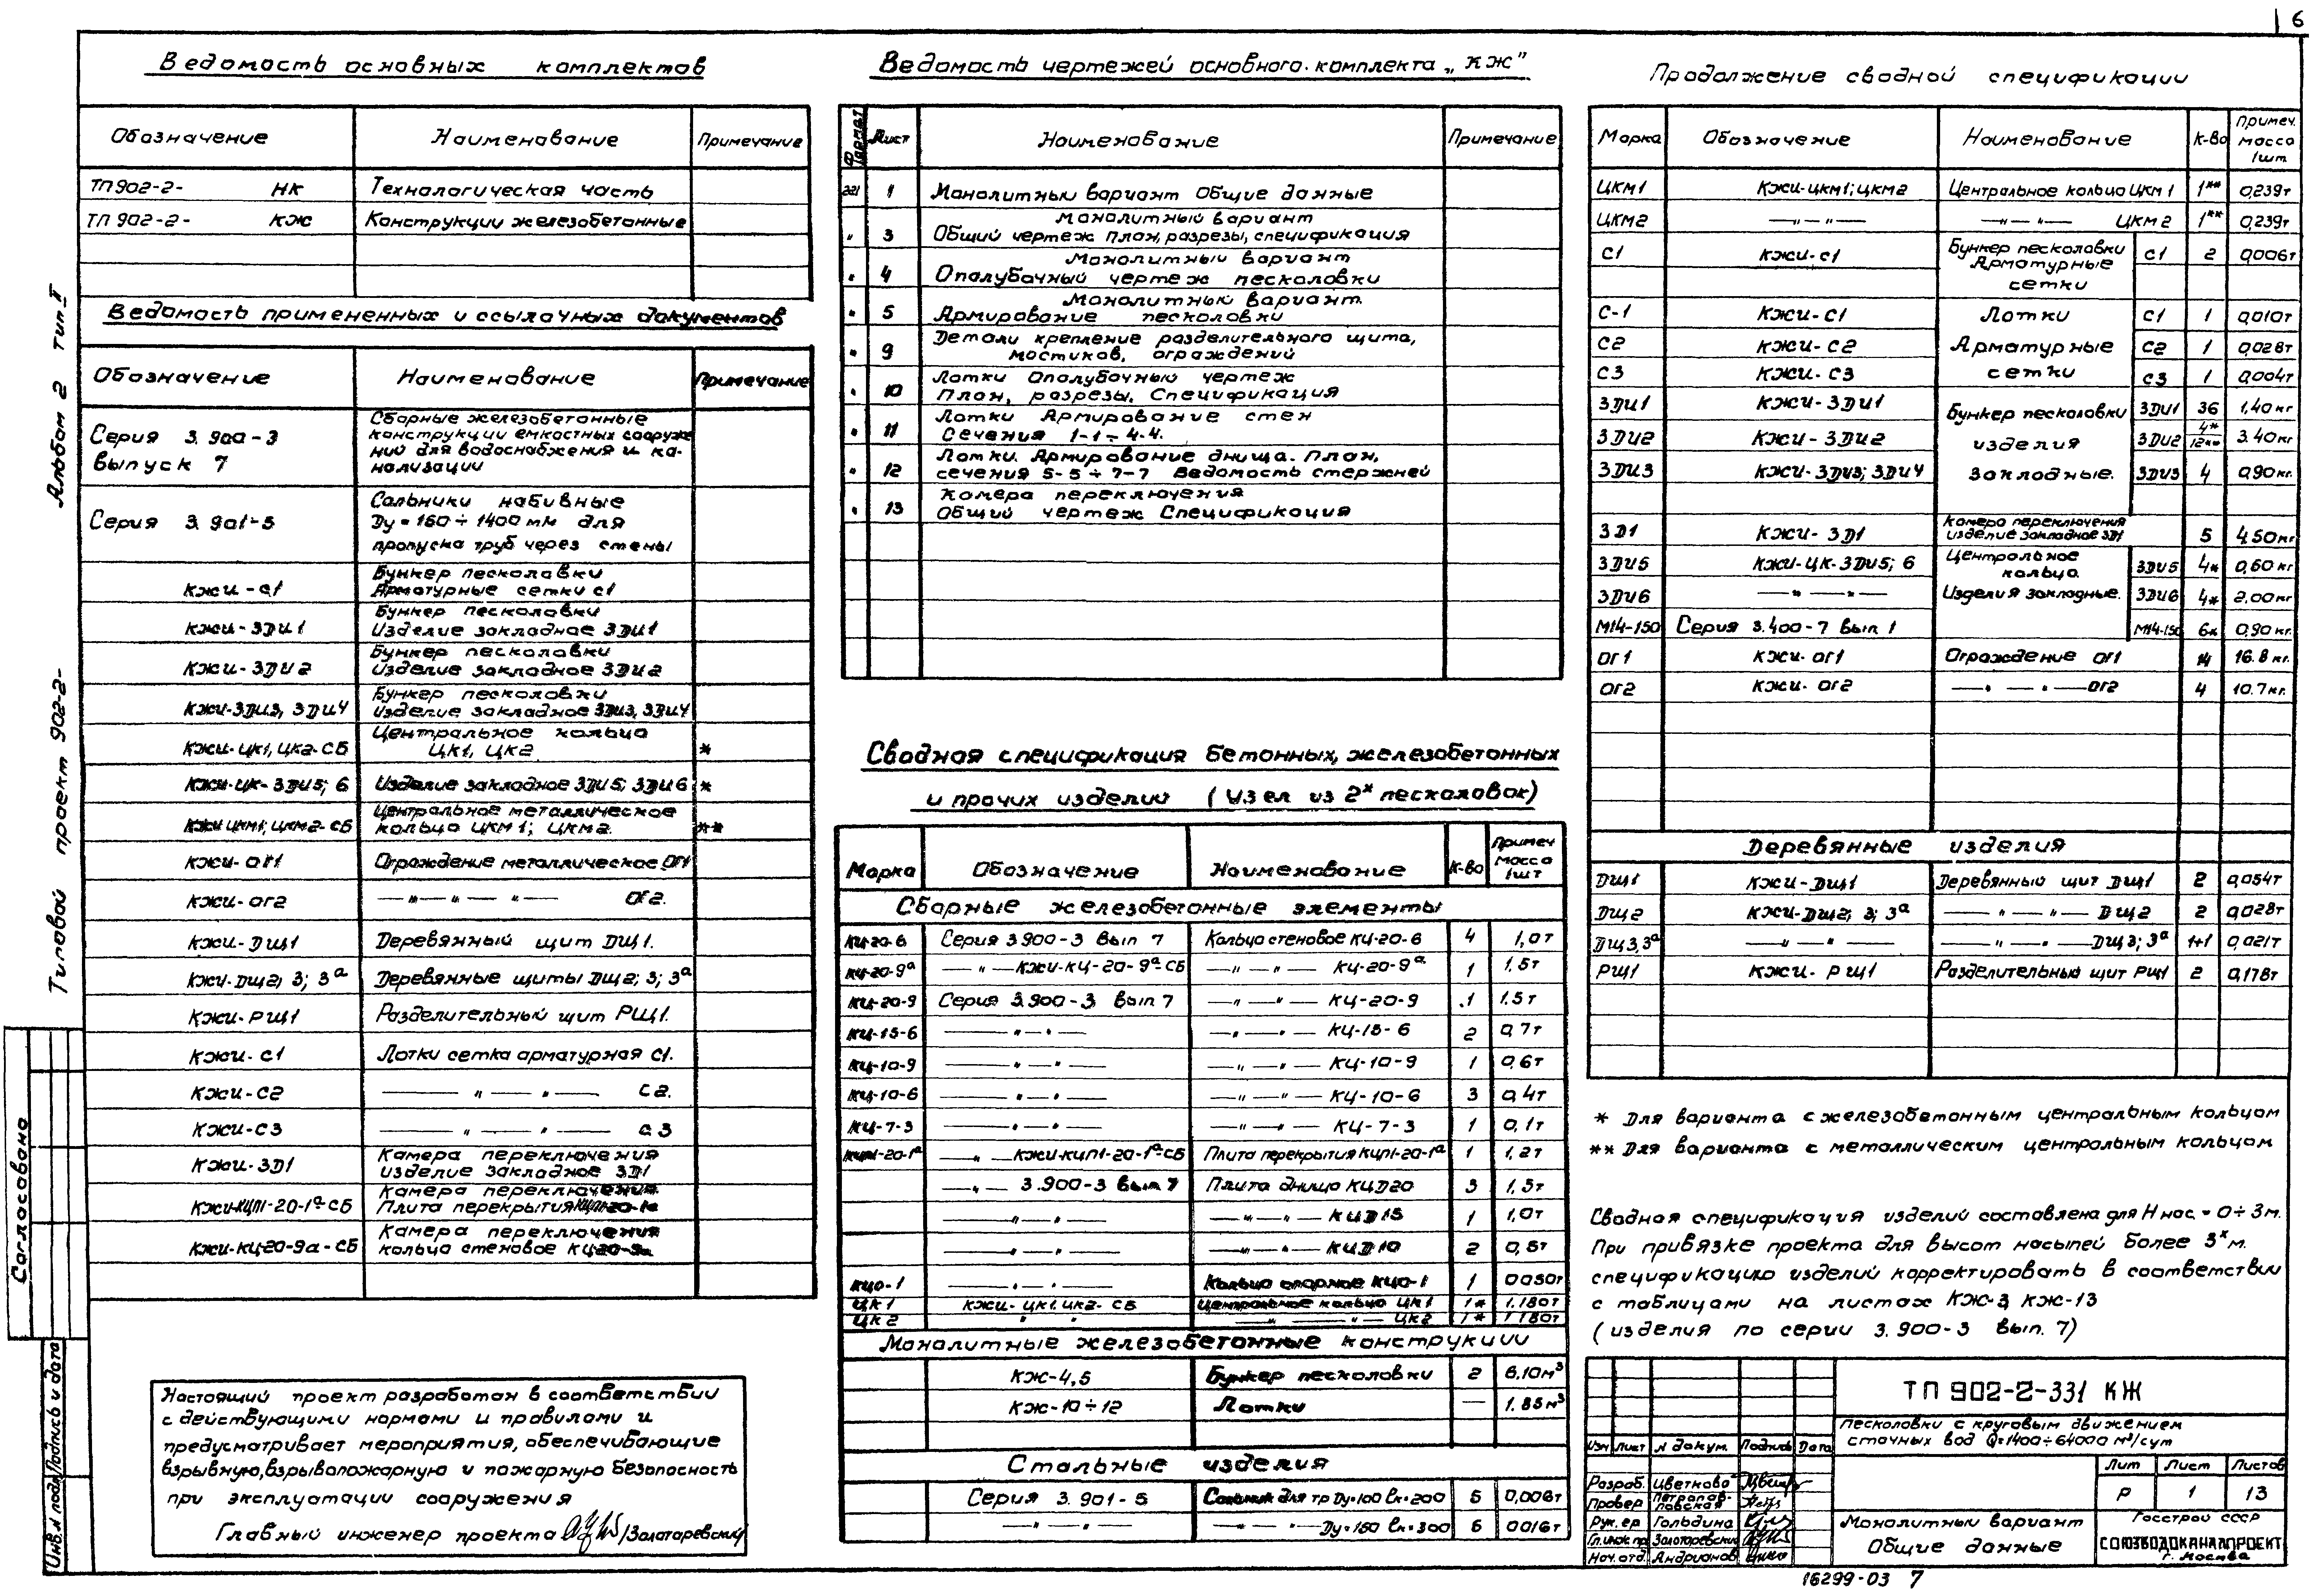 6
Ведомость основных комплектов
Обозначение Наименование Примечание
ТП902-2- НК Технологическая часть
ТП 902-2- КЖ Конструкции железобетонные
Ведомость примененных и ссылочных документов
Обозначение Наименование Примечание
Серия 3.900-3 выпуск 7 Сборные железобетонные
конструкции емкостных сооруже
ний для водоснабжения и ка-
нализации
Серия 3.901-5 Сальники набивные
Ду=160÷1400мм для
пропуска труб через стены
КЖИ-С1 Бункер песколовки
Арматурные сетки С1
КЖИ-ЗДИ1 Бункер песколовки
Изделие закладное ЗДИ1
КЖИ-ЗДИ2 Бункер песколовки
Изделие закладное ЗДИ2
КЖИ-ЗДИ3, ЗДИ4 Бункер песколовки
Изделие закладное ЗДИ3, ЗДИ4
КЖИ-ЦК1, ЦК2-СБ Центральное кольцо
ЦК1, ЦК2 *
КЖИ-ЦК-ЗДИ5; 6 Изделие закладное ЗДИ5; ЗДИ6 *
КЖИ ЦКМ1; ЦКМ2-СБ Центральное металлическое
кольцо ЦКМ1; ЦКМ2. **
КЖИ-ОГ1 Ограждение металлическое ОГ1
КЖИ-ОГ2 —"—"—"— ОГ2.
КЖИ-ДЩ1 Деревянный щит ДЩ1.
КЖИ-ДЩ2; 3; 3а Деревянные щиты ДЩ2; 3; 3а
КЖИ-РЩ1 Разделительный щит РЩ1.
КЖИ-С1 Лотки сетка арматурная С1.
КЖИ-С2 —"—"— С2.
КЖИ-С3 —"—"— С3
КЖИ-ЗД1 Камера переключения
изделие закладное ЗД1
КЖИ-КЦП1-20-1а-СБ Камера переключения
Плита перекрытия КЦП1-20-1а
КЖИ-КЦ20-9а-СБ Камера переключения
кольцо стеновое КЦ20-9а
Настоящий проект разработан в соответствии
с действующими нормами и правилами и
предусматривает мероприятия, обеспечивающие
взрывную, взрывопожарную и пожарную безопасность
при эксплуатации сооружения
Главный инженер проекта /Золотаревский/
Альбом 2 тип II
Типовой проект 902-2-
Согласовано
Инв.N подл Подпись и дата
Ведомость чертежей основного комплекта „КЖ"
Формат Лист Наименование Примечание
22Г 1 Монолитный вариант Общие данные
" 3 Монолитный вариант
Общий чертеж План, разрезы, спецификация
" 4 Монолитный вариант
Опалубочный чертеж песколовки
" 5 Монолитный вариант.
Армирование песколовки
" 9 Детали крепление разделительного щита,
мостиков, ограждений
" 10 Лотки Опалубочный чертеж
План, разрезы. Спецификация
" 11 Лотки Армирование стен
Сечения 1-1÷4-4.
" 12 Лотки. Армирование днища. План,
сечения 5-5÷7-7 Ведомость стержней
" 13 Камера переключения
Общий чертеж Спецификация
Сводная спецификация бетонных, железобетонных
и прочих изделий (Узел из 2х песколовок)
Марка Обозначение Наименование К-во Примеч масса 1шт
Сборные железобетонные элементы
КЦ-20-6 Серия 3.900-3 вып 7 Кольцо стеновое КЦ-20-6 4 1,0т
КЦ-20-9а —"—КЖИ-КЦ-20-9а-СБ —"—"— КЦ-20-9а 1 1.5т
КЦ-20-9 Серия 3.900-3 вып 7 —"—"— КЦ-20-9 1 1.5т
КЦ-15-6 —"—"— —"—"— КЦ-15-6 2 0,7т
КЦ-10-9 —"—"— —"—"— КЦ-10-9 1 0,6т
КЦ-10-6 —"—"— —"—"— КЦ-10-6 3 0,4т
КЦ-7-3 —"—"— —"—"— КЦ-7-3 1 0,1т
КЦП1-20-1а —"—КЖИ-КЦП1-20-1а-СБ Плита перекрытия КЦП1-20-1а 1 1,2т
—"— 3.900-3 вып 7 Плита днища КЦД20 3 1,5т
—"—"— —"—"— КЦД15 1 1,0т
—"—"— —"—"— КЦД10 2 0,5т
КЦО-1 —"—"— Кольцо опорное КЦО-1 1 0050т
ЦК1 КЖИ-ЦК1.ЦК2-СБ Центральное кольцо ЦК1 1* 1.180т
ЦК2 " " —"—"— ЦК2 1* 1180т
Монолитные железобетонные конструкции
КЖ-4,5 Бункер песколовки 2 6,10м³
КЖ-10÷12 Лотки — 1.85м³
Стальные изделия
Серия 3.901-5 Сальник для тр Ду=100 Lк=200 6 0,006т
—"—"— —"—"—Ду=150 Lк=300 6 0016т
Продолжение сводной спецификации
Марка Обозначение Наименование К-во Примеч. масса 1шт
ЦКМ1 КЖИ-ЦКМ1; ЦКМ2 Центральное кольцо ЦКМ1 1** 0,239т
ЦКМ2 —"—"— —"—"— ЦКМ2 1** 0,239т
С1 КЖИ-С1 Бункер песколовки Арматурные сетки С1 2 0,006т
С-1 КЖИ-С1 Лотки С1 1 0,010т
С2 КЖИ-С2 Арматурные С2 1 0,028т
С3 КЖИ-С3 сетки С3 1 0,004т
ЗДИ1 КЖИ-ЗДИ1 Бункер песколовки ЗДИ1 36 1,40кг
ЗДИ2 КЖИ-ЗДИ2 изделия ЗДИ2 4* 12** 3.40кг
ЗДИ3 КЖИ-ЗДИ3; ЗДИ4 закладные. ЗДИ3 4 0,90кг.
ЗД1 КЖИ-ЗД1 Камера переключения изделие закладное ЗД1 5 4,50кг
ЗДИ5 КЖИ-ЦК-ЗДИ5; 6 Центральное кольцо. ЗДИ5 4* 0,60кг
ЗДИ6 —"—"— Изделия закладные. ЗДИ6 4* 2,00кг
М14-150 Серия 3.400-7 Вып 1 М14-150 6* 0,90кг.
ОГ1 КЖИ-ОГ1 Ограждение ОГ1 14 16.8кг.
ОГ2 КЖИ-ОГ2 —"—"—ОГ2 4 10.7кг.
Деревянные изделия
ДЩ1 КЖИ-ДЩ1 Деревянный щит ДЩ1 2 0,054т
ДЩ2 КЖИ-ДЩ2; 3; 3а —"—"— ДЩ2 2 0,028т
ДЩ3,3а —"—"— —"—"— ДЩ3; 3а 1+1 0,021т
РЩ1 КЖИ-РЩ1 Разделительный щит РЩ1 2 0,178т
* Для варианта с железобетонным центральным кольцом
** Для варианта с металлическим центральным кольцом
Сводная спецификация изделий составлена для Ннас.=0÷3м.
При привязке проекта для высот насыпей более 3х м.
спецификацию изделий корректировать в соответствии
с таблицами на листах КЖ-3, КЖ-13
(изделия по серии 3.900-3 вып. 7)
ТП 902-2-331 КЖ
Песколовки с круговым движением
сточных вод Q=1400÷64000 м³/сут
Изм Лист N докум. Подпись Дата
Разраб. Цветкова
Провер Петропавловская
Рук.гр Гольдина
Гл.инж.пр Золотаревский
Нач.отд. Андрианов
Лит Лист Листов
Р 1 13
Монолитный вариант
Общие данные
Госстрой СССР
СОЮЗВОДОКАНАЛПРОЕКТ
г. Москва
16299-03 7